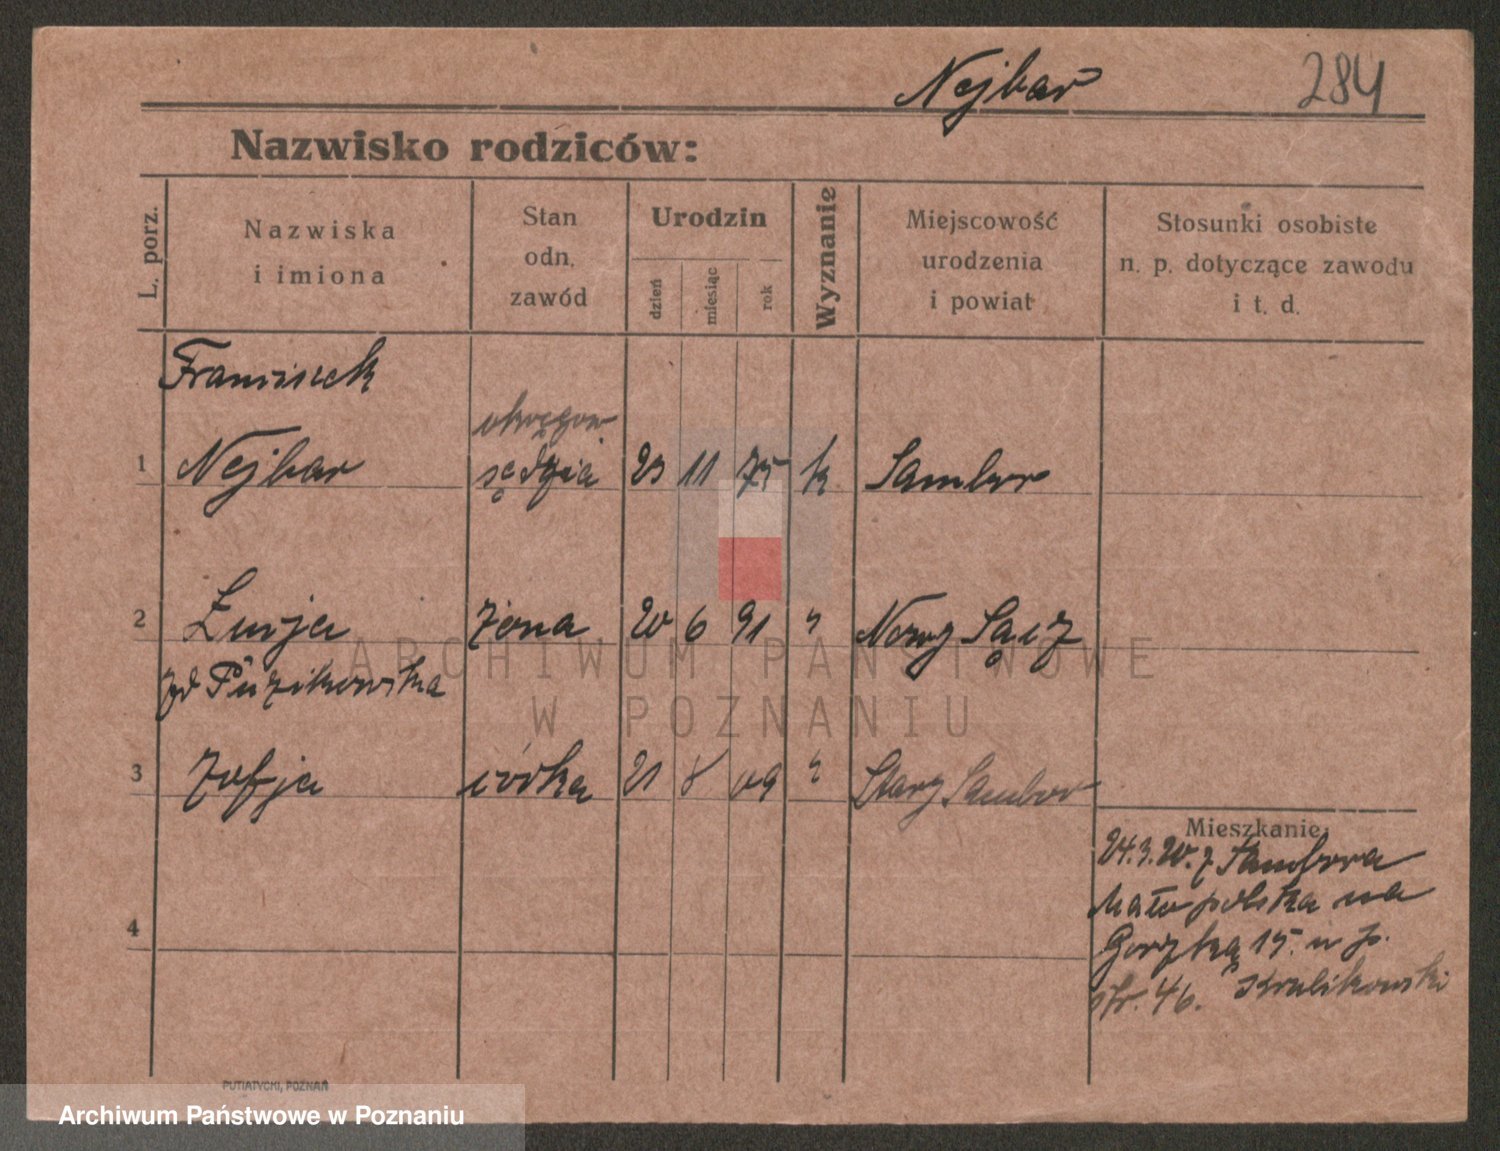 Nejbar 284
Nazwisko rodziców:
L. porz.
Nazwiska
i imiona
Stan
odn.
zawód
Urodzin
dzień
miesiąc
rok
Wyznanie
Miejscowość
urodzenia
i powiat
Stosunki osobiste
n. p. dotyczące zawodu
i t. d.
Franciszek
okręgow
1 Nejbar sędzia 23 11 75 k Sambor
2 Luzja żona 20 6 91 " Nowy Sącz
zd Puzikowska
3 Zofja córka 21 8 09 " Stary Sambor
Mieszkanie:
24.3.20. z Sambora
Małopolska na
4
Gorzką 15. u p.
str. 46. Kralikowski
ARCHIWUM PAŃSTWOWE
W POZNANIU
PUTIATYCKI, POZNAŃ
Archiwum Państwowe w Poznaniu